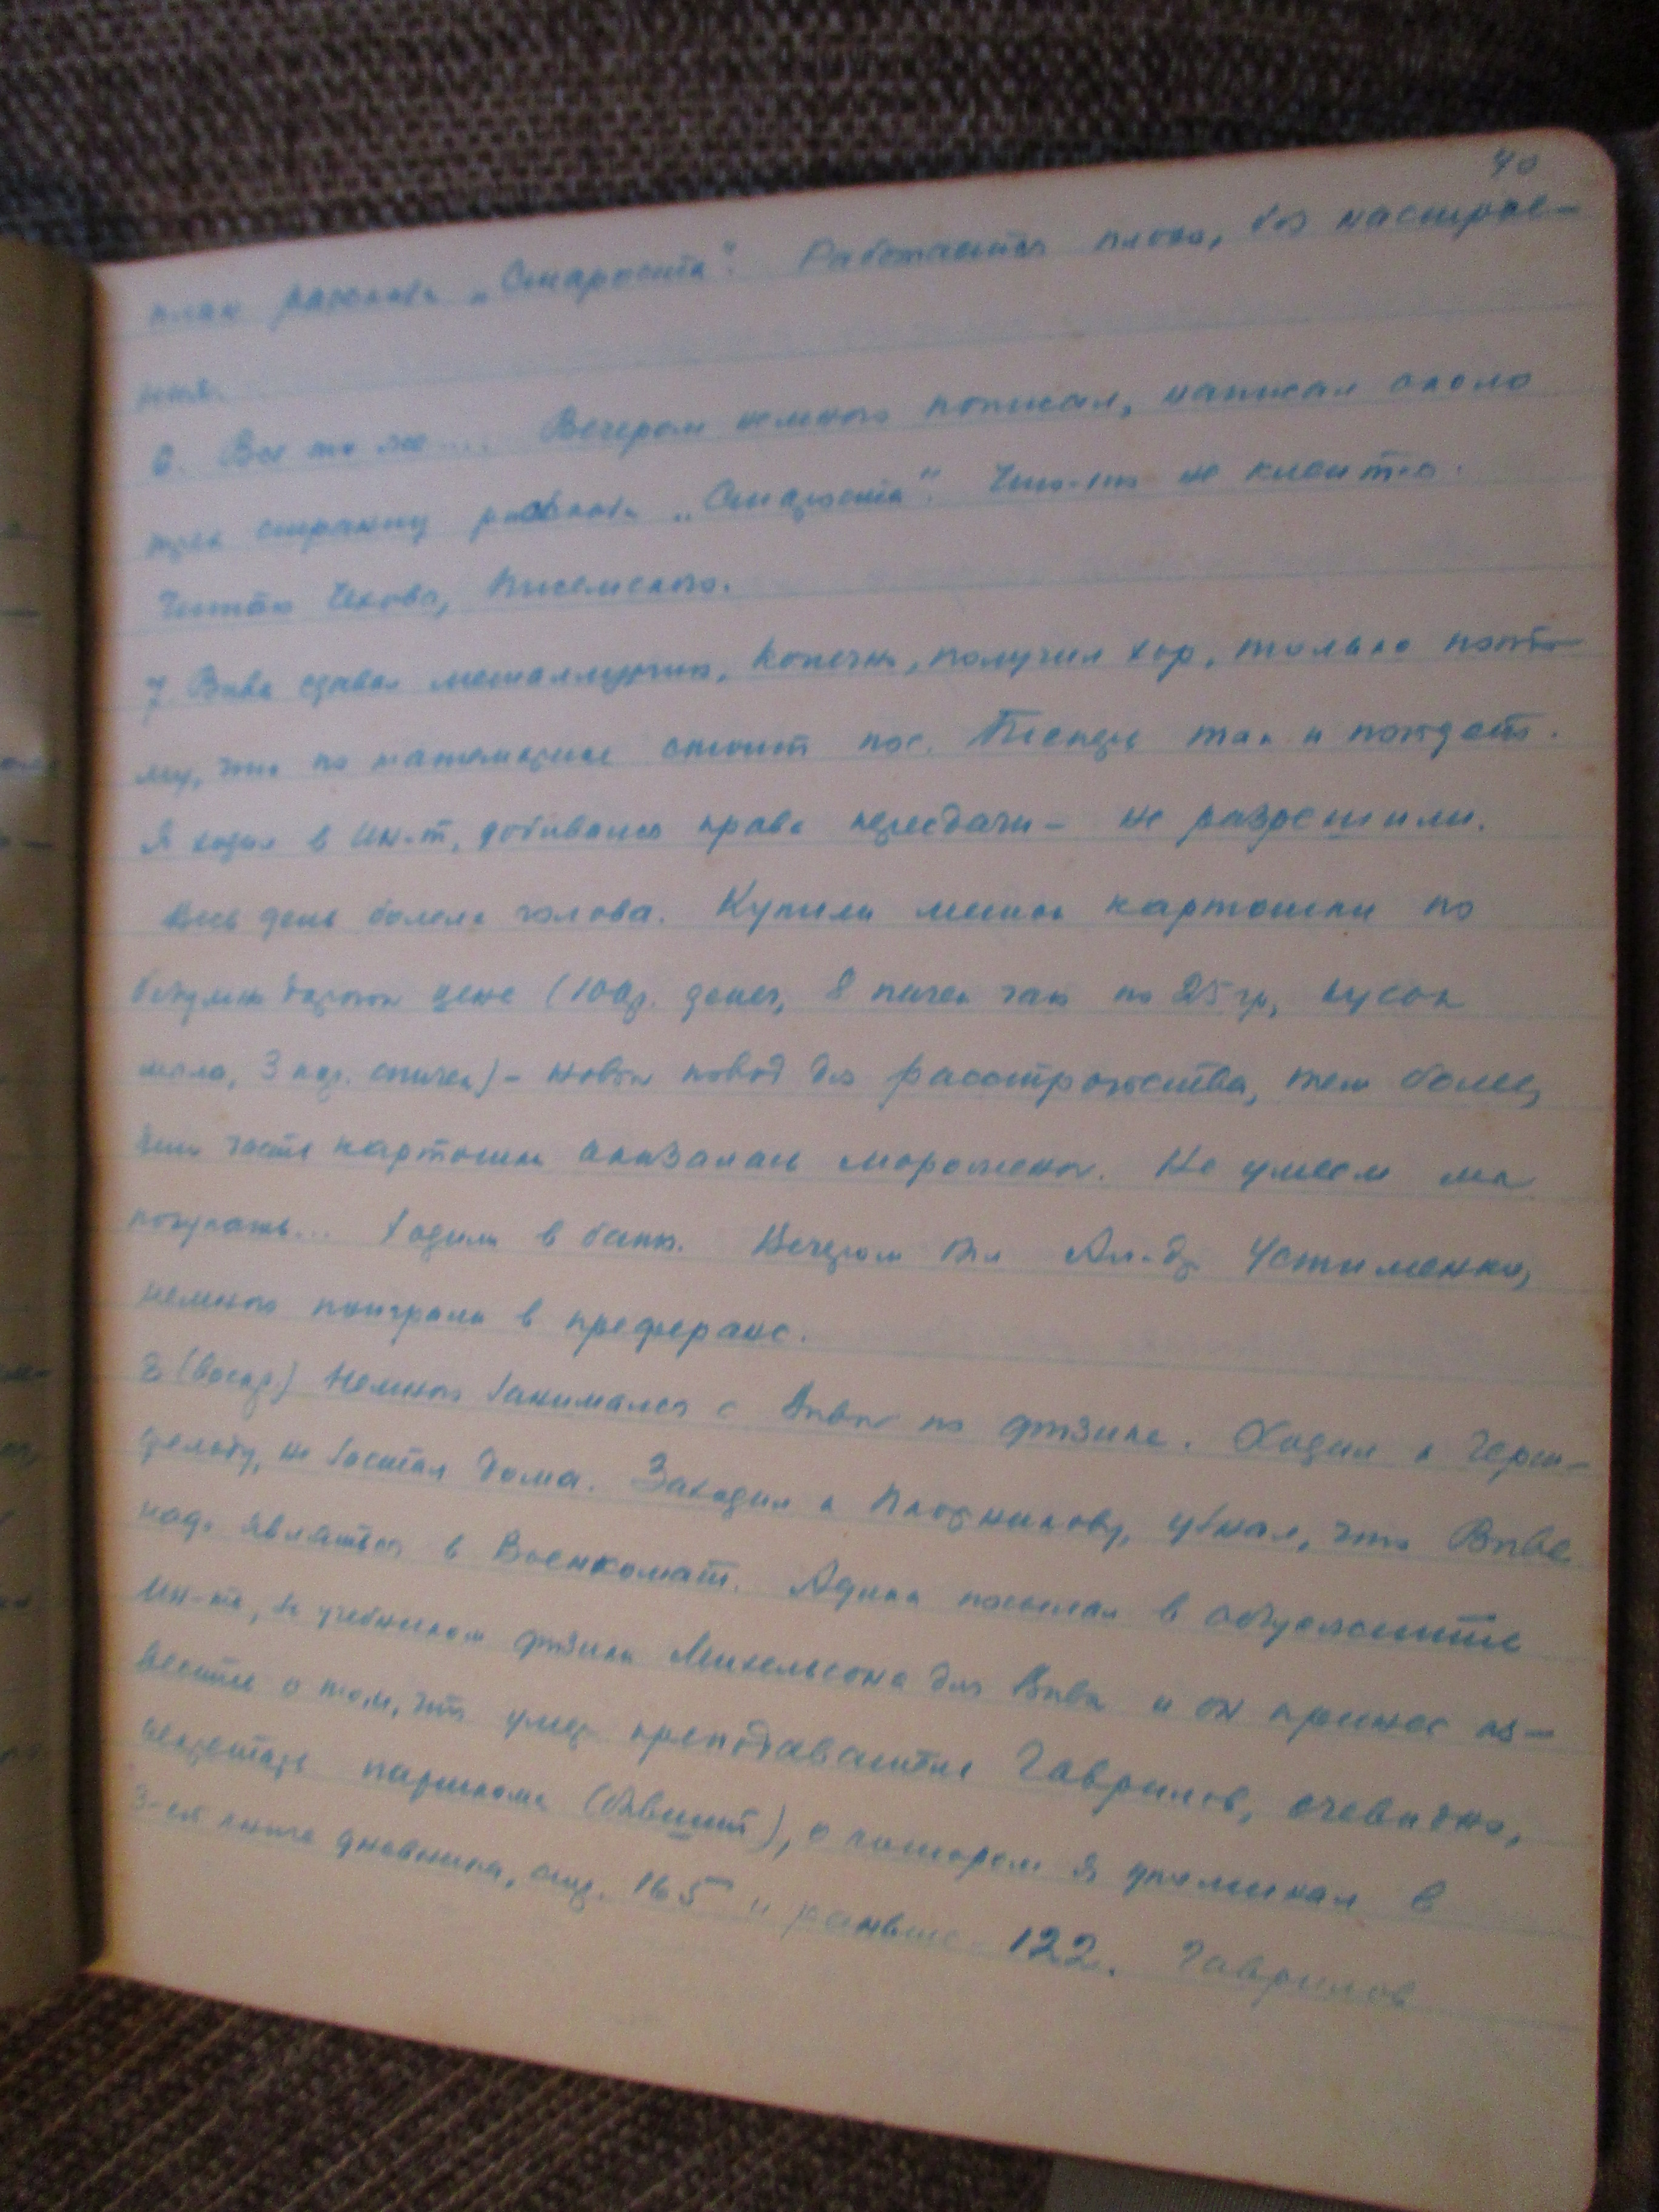 40
план рассказа „Старость“. Работается плохо, без настрое-
ния.
6. Все то же.... Вечером немного пописал, написал около
трех страниц рассказа „Старость“. Что-то не клеится.
Читаю Чехова, Писемского.
7. Вива сдавал металлургию, конечно, получил хор, только пото-
му, что по математике стоит пос. Теперь так и пойдет.
Я ходил в Ин-т, добивался права пересдачи - не разрешили.
Весь день болела голова. Купили мешок картошки по
безумно дорогой цене (100 р. денег, 8 пачек чаю по 25 гр, кусок
мыла, 3 кор. спичек) - новый повод для расстройства, тем более,
что часть картошки оказалась мороженой. Не умеем мы
покупать... Ходил в банк. Вечером был Ал-др Устименко,
немного поиграли в преферанс.
8 (воскр) Немного занимался с Вивой по физике. Ходил к Герш-
фельду, не застал дома. Заходил к Плотникову, узнал, что Виве
надо явиться в Военкомат. Адика посылал в общежитие
Ин-та, за учебником физики Михельсона для Вивы и он принес из-
вестие о том, что умер преподаватель Гаврилов, очевидно,
секретарь парткома (бывший), о котором я упоминал в
3-ей книге дневника, стр. 165 и раньше - 122. Гаврилов